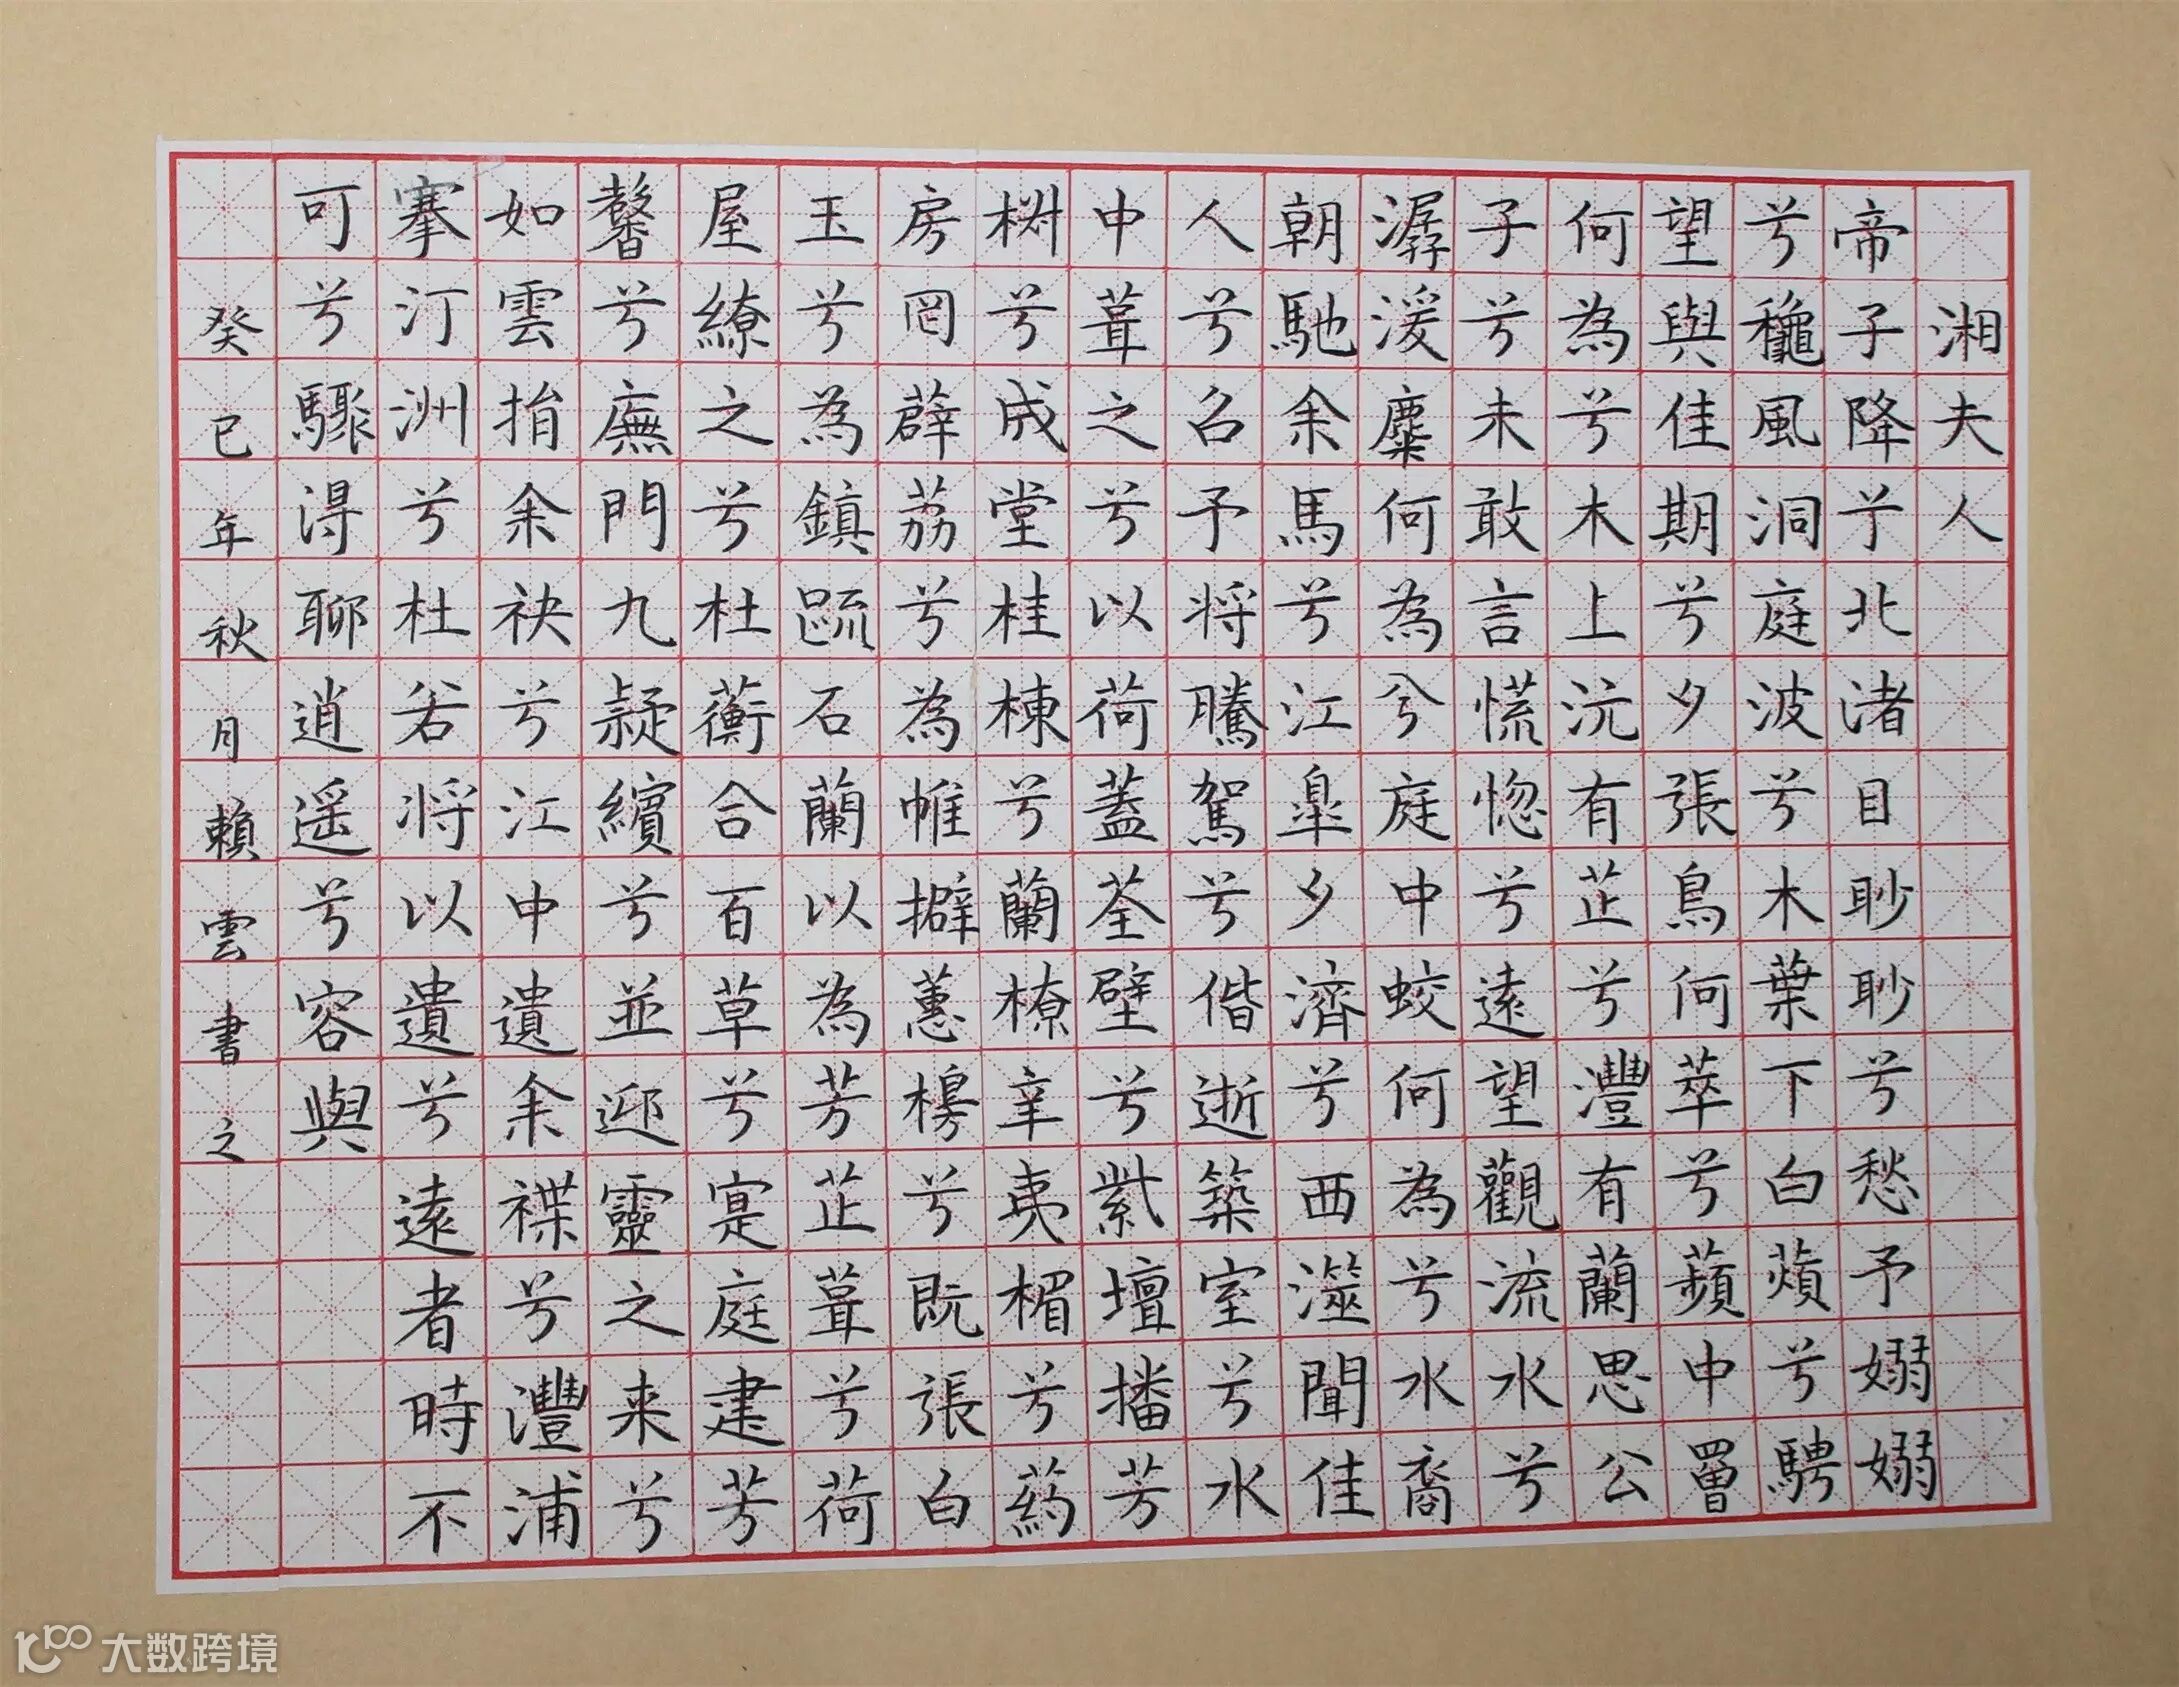 湘夫人
帝子降兮北渚目眇眇兮愁予嫋嫋
兮穐風洞庭波兮木葉下白薠兮騁
望與佳期兮夕張鳥何萃兮蘋中罾
何為兮木上沅有芷兮澧有蘭思公
子兮未敢言慌惚兮遠望觀流水兮
潺湲麋何為兮庭中蛟何為兮水裔
朝馳余馬兮江皐夕濟兮西澨聞佳
人兮召予将騰駕兮偕逝築室兮水
中葺之兮以荷蓋荃壁兮紫壇播芳
椒兮成堂桂棟兮蘭橑辛夷楣兮葯
房罔薜荔兮為帷擗蕙櫋兮既張白
玉兮為鎮疏石蘭以為芳芷葺兮荷
屋繚之兮杜蘅合百草兮寔庭建芳
馨兮廡門九疑繽兮並迎靈之来兮
如雲捐余袂兮江中遺余褋兮澧浦
搴汀洲兮杜若将以遺兮遠者時不
可兮驟得聊逍遥兮容與
癸巳年秋月賴雲書之
大数跨境